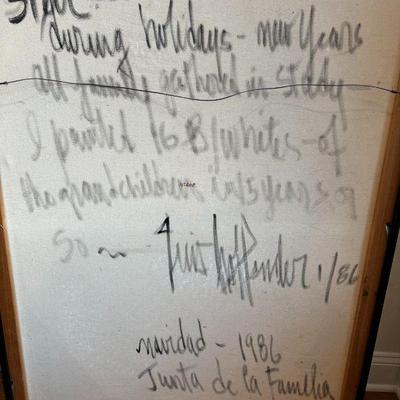 during holidays - new years
all family gathered in study
I painted 16 B/whites - of
the grandchildren in 15 years or
so 1/86
navidad - 1986
Junta de la Familia